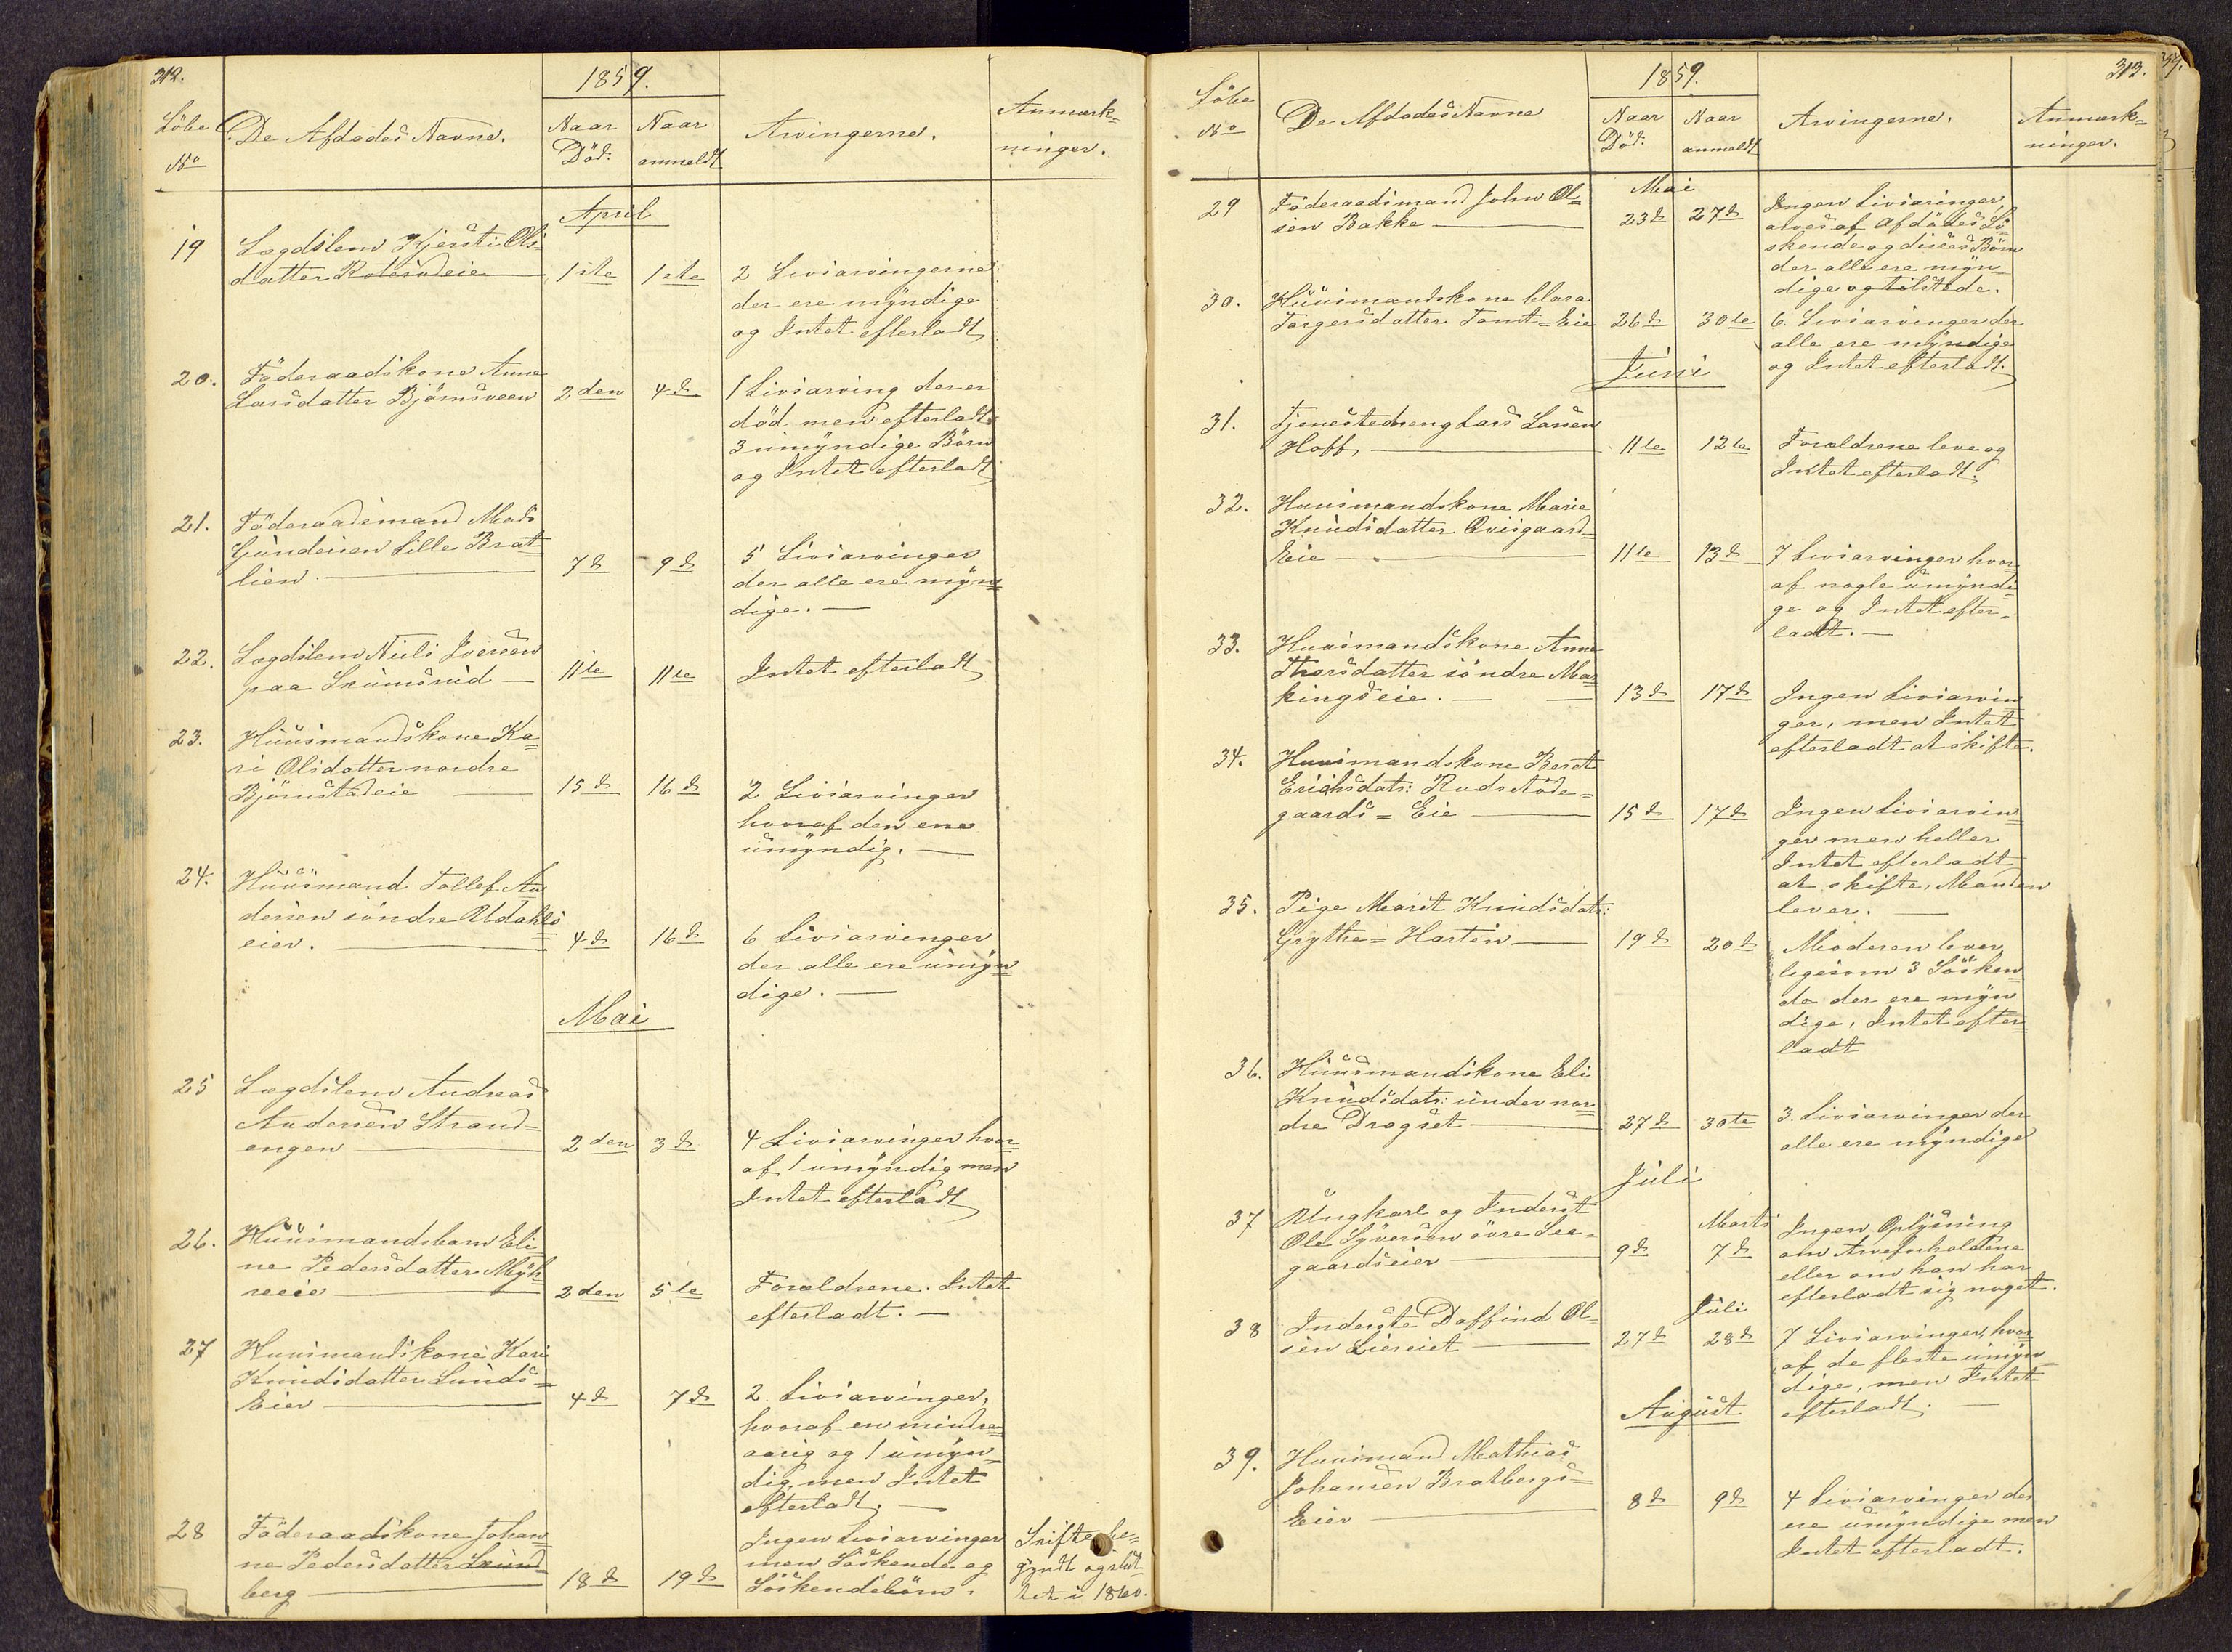 312.
1859.
Löbe No
De Afdødes Navne.
Naar Död.
Naar anmeldt
Arvingerne.
Anmærk=
ninger.
April
19
Lægdslem Kjersti Ols
datter
1ste
1ste
2 Livsarvingerne
der ere myndige
og Intet efterladt
20.
Föderaadskone Anne
Larsdatter Björnsveen
2den
4d
1 Livsarving der er
död men efterladt
3 umyndige Börn
og Intet efterladt
21.
Föderaadsmand Mads
Gundersen Lille Brat=
lien.
7d
9d
5 Livsarvinger
der alle ere myn=
dige.
22.
Lægdslem Niels Iversen
paa
11te
11te
Intet efterladt
23.
Huusmandskone Ka=
ri Olsdatter nordre
Björnstadeie
15d
16d
2 Livsarvinger
hvoraf den ene
umyndig.
24.
Huusmand Tollef An
dersen söndre Udahls
eier.
4d
16d
6 Livsarvinger
der alle ere umyn=
dige.
Mai
25
Lægdslem Andreas
Andersen Strand=
engen
2den
3d
4 Livsarvinger hvor=
af 1 umyndig men
Intet efterladt
26.
Huusmandsbarn Eli
ne Pedersdatter Myh=
reeie
2den
5te
Forældrene. Intet
efterladt.
27
Huusmandskone Kari
Knudsdatter Lunds=
Eier
4d
7d
2 Livsarvinger,
hvoraf en mindre=
aarig og 1 umyn=
dig, men Intet
efterladt.
28
Föderaadskone Johan=
ne Pedersdatter
berg
18d
19d
Ingen Livsarvinger
men Söskende og
Söskendebörn.
Skifte be=
gyndt og slut
tet i 1860.
313.
1859.
Löbe No
De Afdødes Navne
Naar Död.
Naar anmeldt
Arvingerne.
Anmærk=
ninger.
Mai
29
Föderaadsmand John Ol=
sen Bakke
23d
27d
Ingen Livsarvinger,
arves af Afdödes Sö=
skende og disses Börn
der alle ere myn=
dige og tilstede.
30.
Huusmandskone Clara
Torgersdatter Tomt=Eie
26d
30te
6. Livsarvinger der
alle ere myndige
og Intet efterladt.
Juni
31.
Tjenestedreng Lars Larsen
Hoff
11te
12te
Forældrene leve og
Intet efterladt.
32.
Huusmandskone Marie
Knudsdatter Qvisgaard=
Eie
11te
13d
7 Livsarvinger hvor=
af nogle umyndi=
ge og Intet efter=
ladt.
33.
Huusmandskone Anne
Thorsdatter söndre Mar=
kingseie.
13d
17d
Ingen Livsarvin=
ger, men Intet
efterladt at skifte.
34.
Huusmandskone Beret
Erichsdatr: Ruds Aöde=
gaards=Eie
15d
17d
Ingen Livsarvin=
ger men heller
Intet efterladt
at skifte, Manden
lever.
35.
Pige Marit Knudsdatr:
Grythe=Horten
19d
20d
Moderen lever,
ligesom 3 Sösken=
de der ere myn
dige, Intet efter=
ladt
36.
Huusmandskone Eli
Knudsdatr: under nor=
dre Dragset
27d
30te
3. Livsarvinger der
alle ere myndige
Juli
37
Ungkarl og Inderst
Ole Syversen övre See=
gaardseier
9d
Marts
7d
Ingen Oplysning
om Arveforholdene
eller om han har
efterladt sig noget.
38
Inderste Daffind Ol=
sen Liereiet
27d
Juli
28d
7 Livsarvinger, hvor=
af de fleste umyn=
dige, men Intet
efterladt.
August
39.
Huusmand Mathias
Johansen Bratbergs=
Eier
8d
9d
4 Livsarvinger der
ere umyndige men
Intet efterladt.